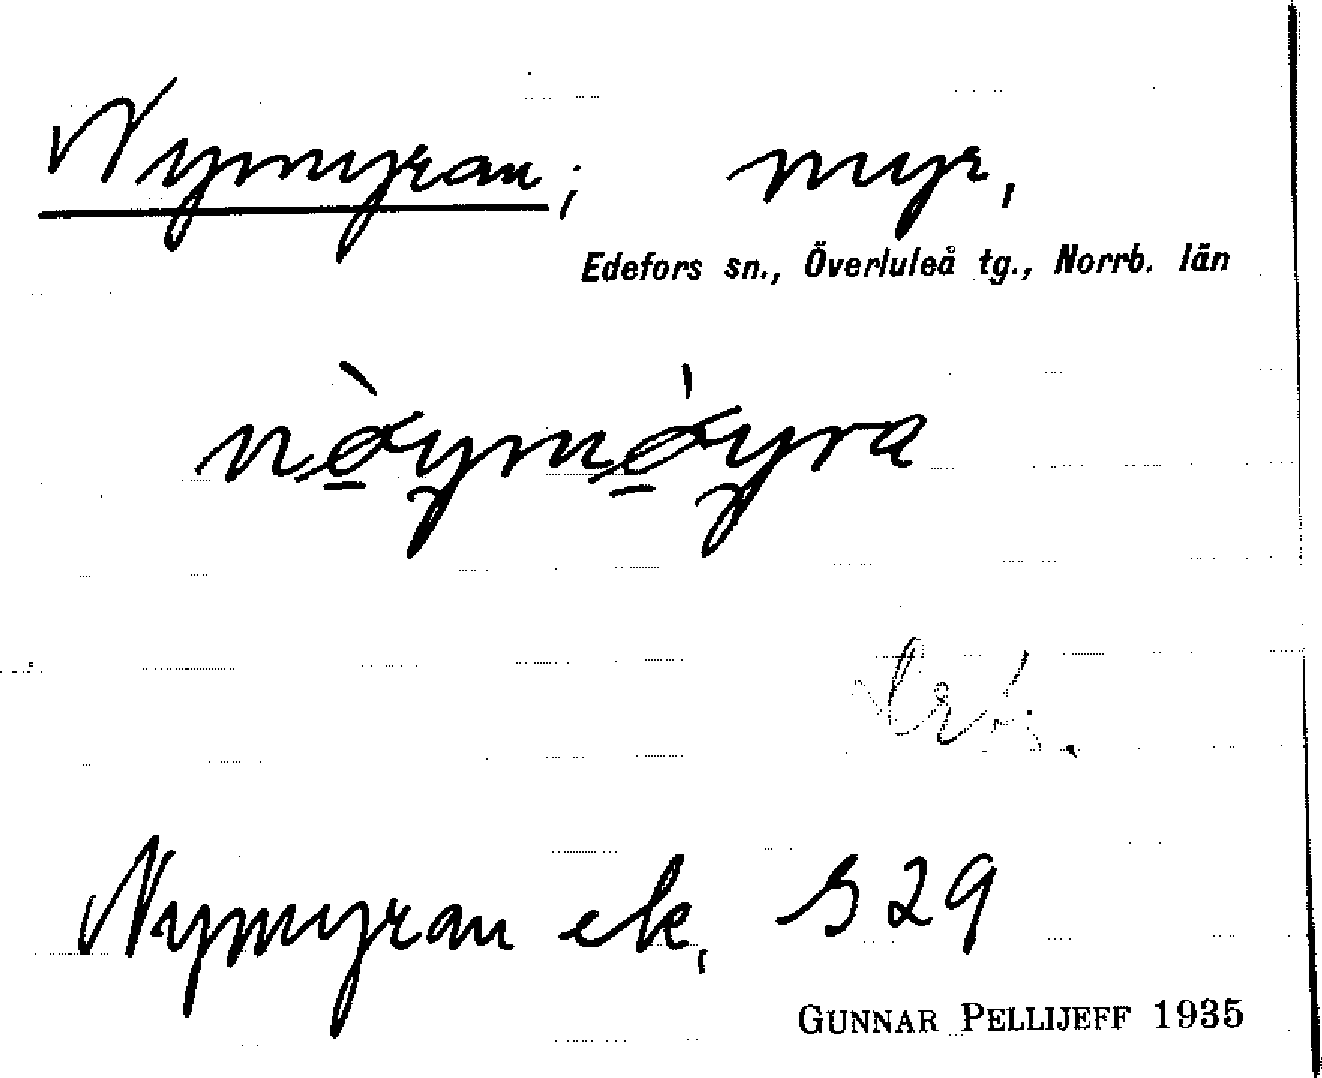 Nymyran; myr,
Edefors sn., Överluleå tg., Norrb. län
Nymyran ek, S 29
GUNNAR PELLIJEFF 1935